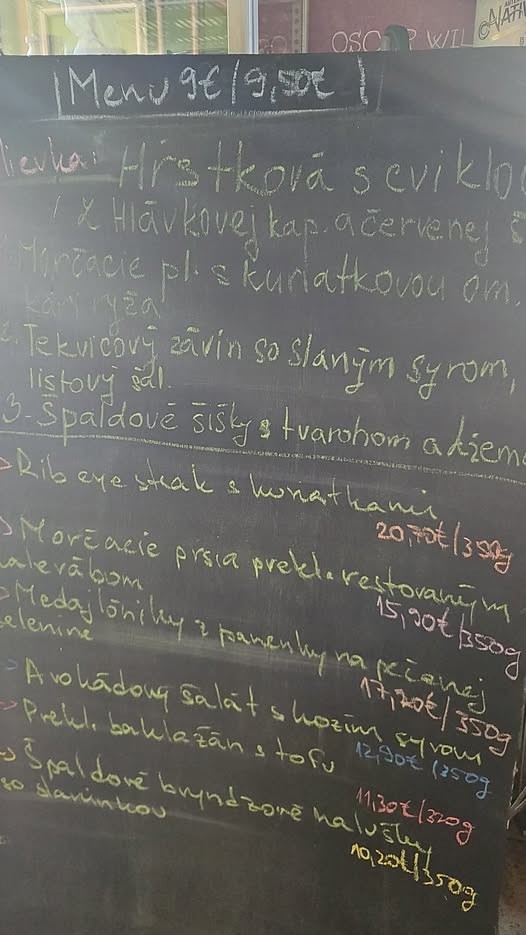 OSCAR WIL
NATIV
Menu 9€/9,50€
lievka: Hŕstková s cviklo
/ z Hlávkovej kap. a červenej š
Morčacie pl. s kuriatkovou om.
kari ryža
2. Tekvicový závin so slaným syrom,
listový šal.
3. Špaldové šišky s tvarohom a džem
Rib eye steak s kuriatkami
20,70€/350g
Morčacie prsia prekl. restovaným
kalerábom
15,90€/350g
Medajlóniky z panenky na pečenej
zelenine
17,20€/350g
Avokádový šalát s kozím syrom
12,90€/350g
Prekl. baklažán s tofu
11,30€/320g
Špaldové bryndzové halušky
so slaninkou
10,20€/350g